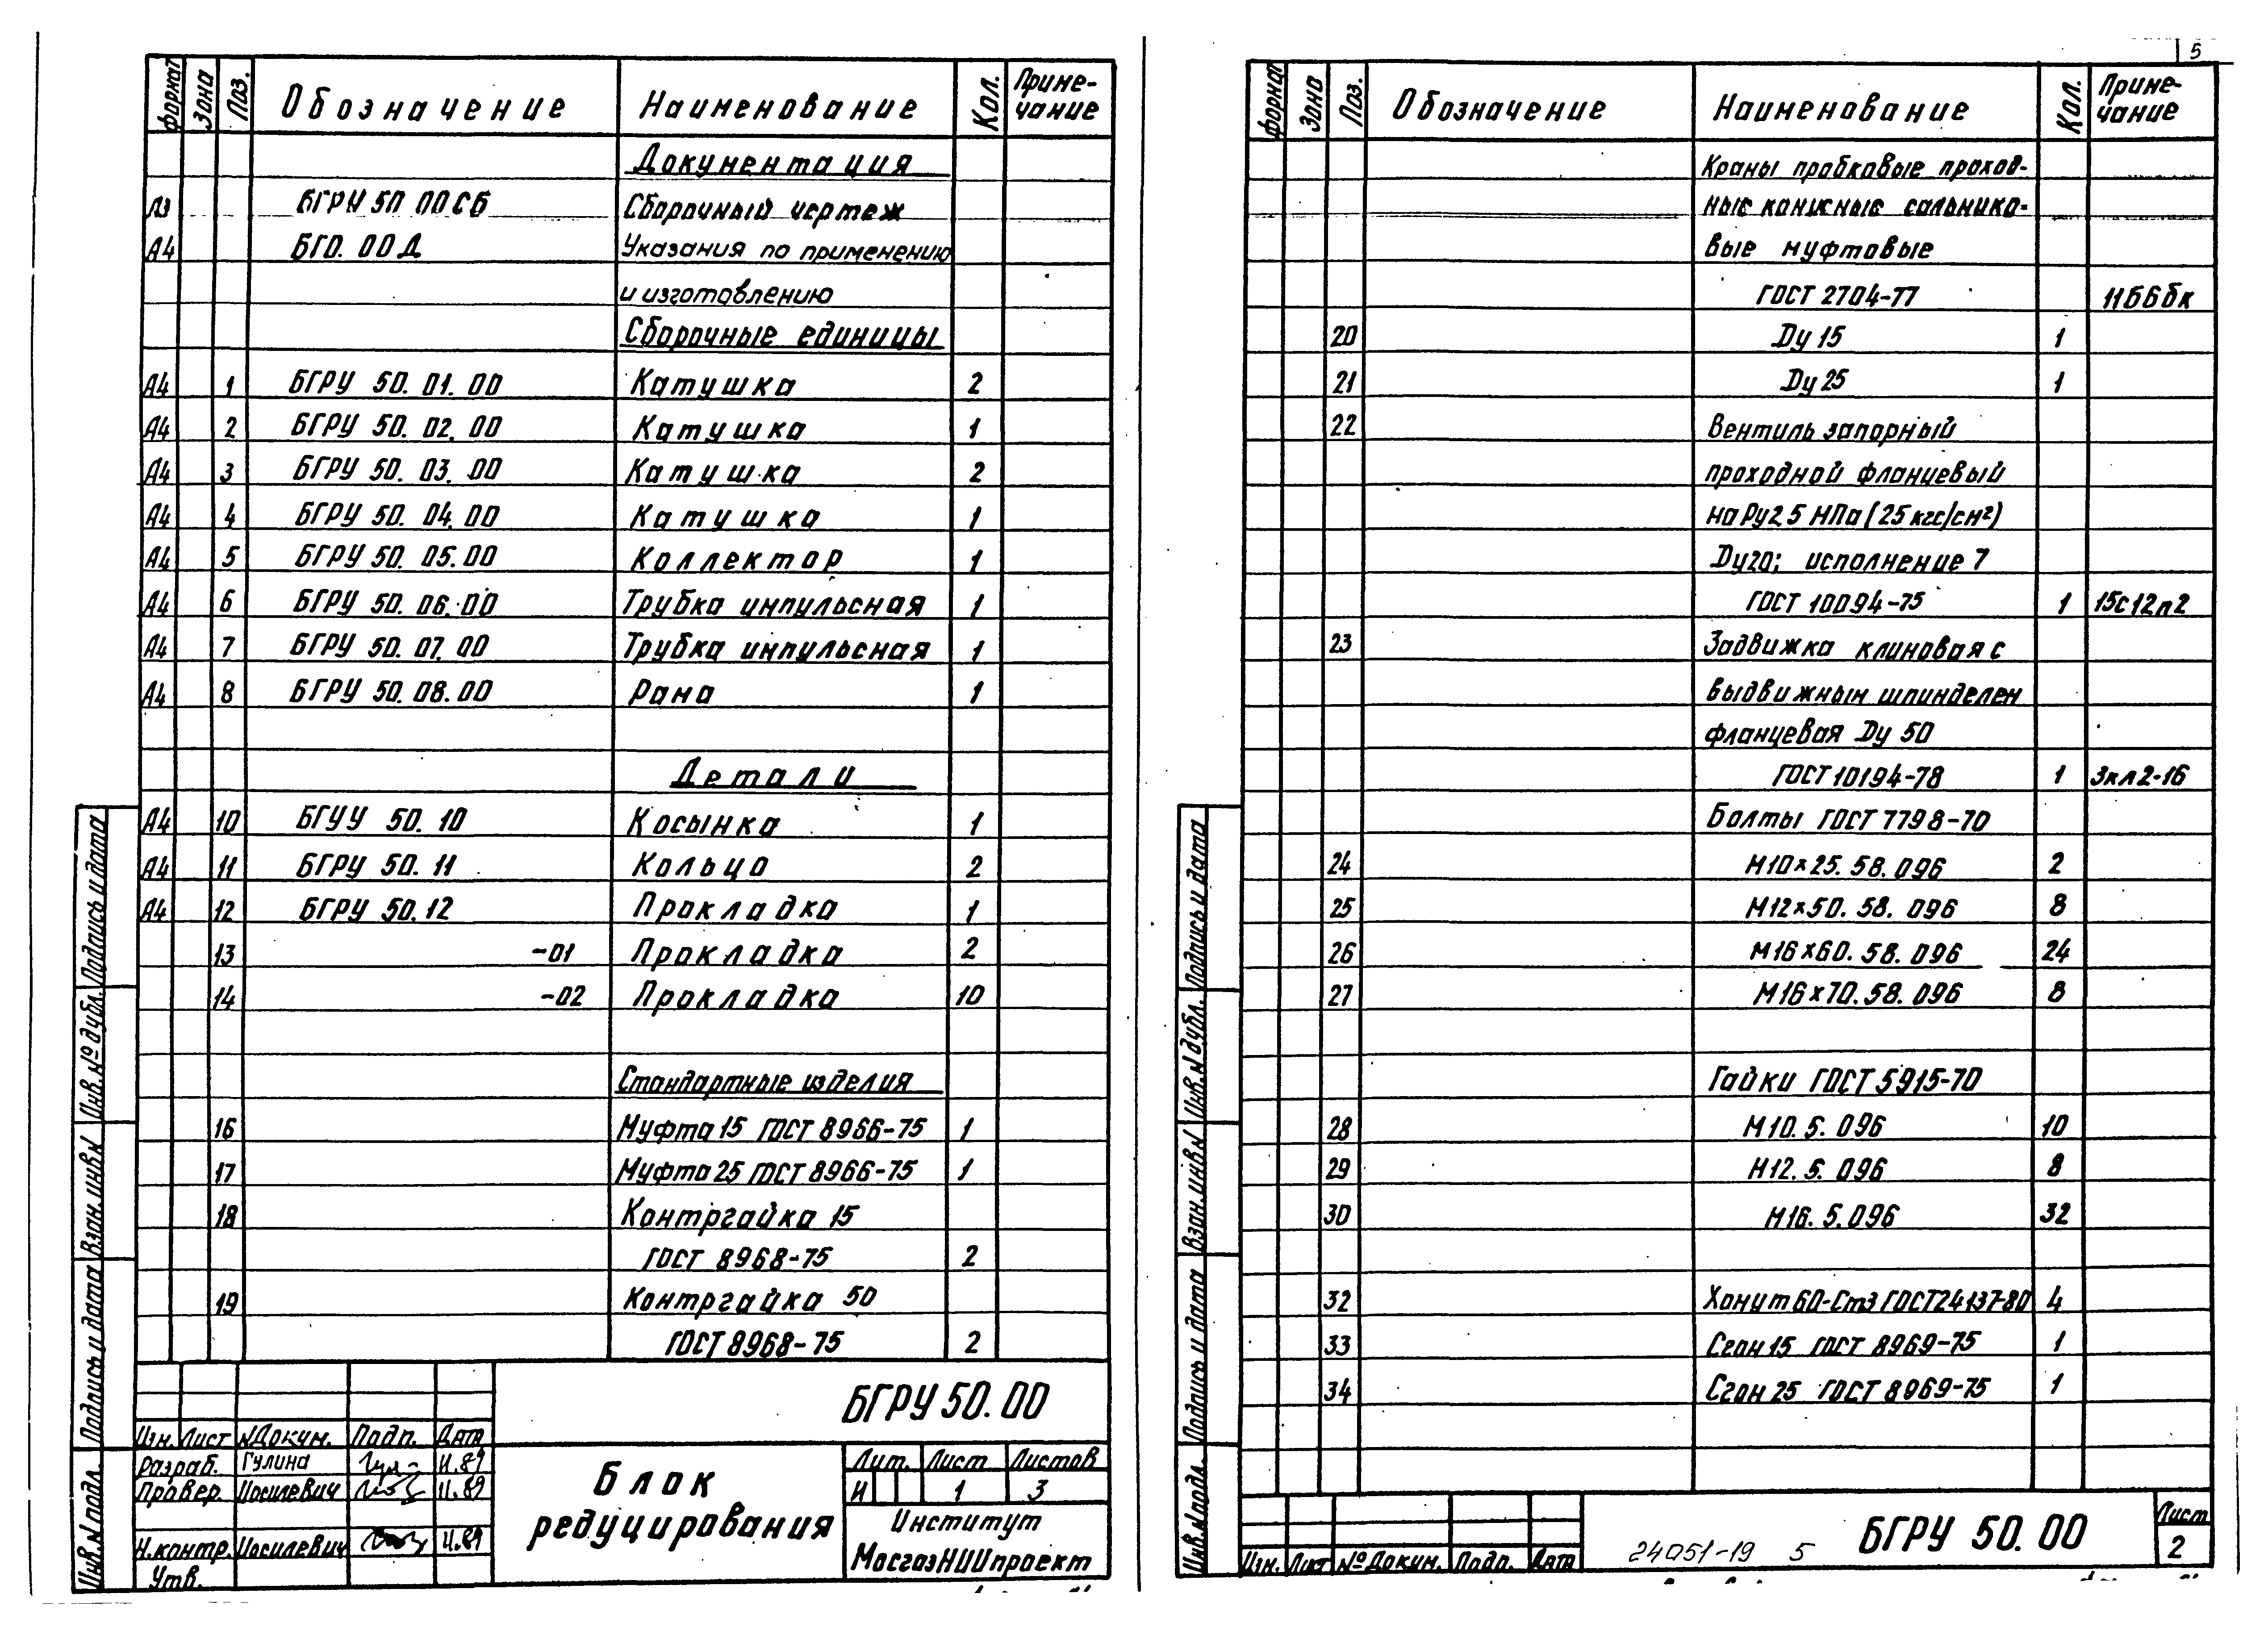 Формат Зона Поз. Обозначение Наименование Кол. Приме-
чание
Документация
А3 БГРУ 50 00 СБ Сборочный чертеж
А4 БГО. 00 Д Указания по применению
и изготовлению
Сборочные единицы
А4 1 БГРУ 50. 01. 00 Катушка 2
А4 2 БГРУ 50. 02. 00 Катушка 1
А4 3 БГРУ 50. 03. 00 Катушка 2
А4 4 БГРУ 50. 04. 00 Катушка 1
А4 5 БГРУ 50. 05. 00 Коллектор 1
А4 6 БГРУ 50. 06. 00 Трубка импульсная 1
А4 7 БГРУ 50. 07. 00 Трубка импульсная 1
А4 8 БГРУ 50. 08. 00 Рама 1
Детали
А4 10 БГУУ 50. 10 Косынка 1
А4 11 БГРУ 50. 11 Кольцо 2
А4 12 БГРУ 50. 12 Прокладка 1
13 -01 Прокладка 2
14 -02 Прокладка 10
Стандартные изделия
16 Муфта 15 ГОСТ 8966-75 1
17 Муфта 25 ГОСТ 8966-75 1
18 Контргайка 15
ГОСТ 8968-75 2
19 Контргайка 50
ГОСТ 8968-75 2
Подпись и дата
Инв. № дубл.
Взам. инв. №
Подпись и дата
Инв. № подл.
БГРУ 50. 00
Изм. Лист № Докум. Подп. Дата
Разраб. Гулина 11.89
Провер. Иосилевич 11.89
Н. контр. Иосилевич 11.89
Утв.
Блок
редуцирования
Лит. Лист Листов
И 1 3
Институт
МосгазНИИпроект
5
Формат Зона Поз. Обозначение Наименование Кол. Приме-
чание
Краны пробковые проход-
ные конусные сальнико-
вые муфтовые
ГОСТ 2704-77 11б6бк
20 Dу 15 1
21 Dу 25 1
22 Вентиль запорный
проходной фланцевый
на Ру 2,5 МПа (25 кгс/см²)
Dу 20; исполнение 7
ГОСТ 10094-75 1 15с12п2
23 Задвижка клиновая с
выдвижным шпинделем
фланцевая Dу 50
ГОСТ 10194-78 1 3кл2-16
Болты ГОСТ 7798-70
24 М10×25. 58. 096 2
25 М12×50. 58. 096 8
26 М16×60. 58. 096 24
27 М16×70. 58. 096 8
Гайки ГОСТ 5915-70
28 М10. 5. 096 10
29 М12. 5. 096 8
30 М16. 5. 096 32
32 Хомут 60-Ст3 ГОСТ 24137-80 4
33 Сгон 15 ГОСТ 8969-75 1
34 Сгон 25 ГОСТ 8969-75 1
Подпись и дата
Инв. № дубл.
Взам. инв. №
Подпись и дата
Инв. № подл.
Изм. Лист № Докум. Подп. Дата
24051-19 5
БГРУ 50. 00
Лист
2